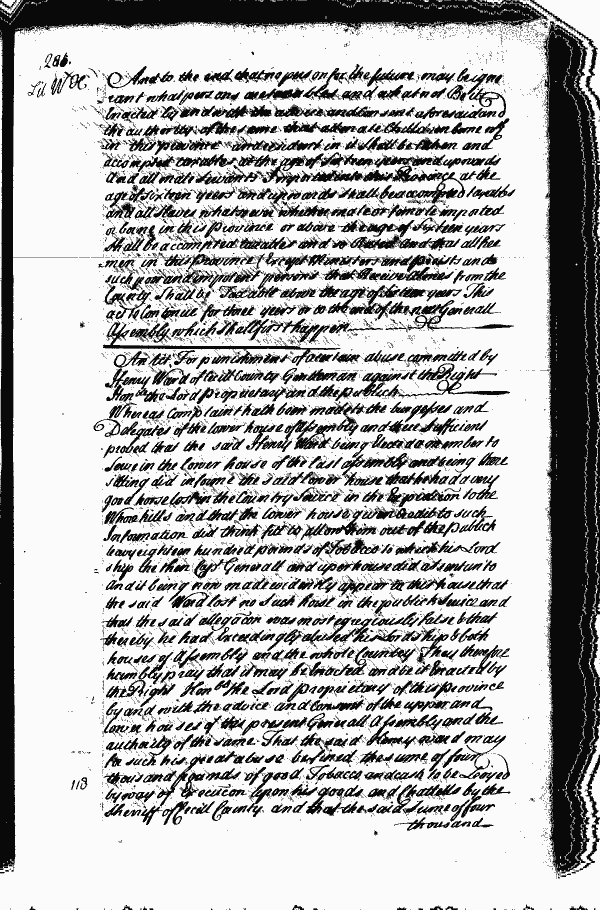 286.
Lib W H
And to the end that no person for the future may be igno
rant what persons are taxables and what not Be itt
Enacted by and with the advice and Consent aforesaid and
the authority of the same that all male Children borne
in this province and resident in it shall be taken and
accompted taxables at the age of Sixteen years and upwards
And all male Servants Imported into this Province at the
age of sixteen years and upwards shall be accompted taxables
and all slaves whatsoever whether male or female imported
or borne in this province or above the age of Sixteen years
shall be accompted taxables and so Rated And that all free
men in this province (Except Ministers and Preists and
such poor and impotent persons that Receive Almes from the
County shall be Taxable above the age of sixteen years This
act to Continue for three years or to the end of the next Generall
Assembly which shall first happen
An Act For punishment of a certain abuse committed by
Henry Ward of Cecill County Gentleman against the Right
Honble the Lord Proprietary and the publick
Whereas Complaint hath been made to the burgesses and
Delegates of the lower house of Assembly and there sufficient
proved that the said Henry Ward being Elected a member to
Serve in the Lower house of the last assembly and being there
sitting did informe the said lower house that he had a very
good horse lost in the Country Service in the Expedition to the
Whorekills and that the lower house giveing Credit to such
Information did think fitt to allow him out of the publick
leavy eighteen hundred pounds of Tobacco to which his Lord
ship the then Capt Generall and upper house did assent unto
And it being now made evidently appear to this house that
the said Ward lost no such horse in the publick Service and
that the said allegacon was most egregiously false & that
thereby he had Exceedingly abused his Lordship & both
houses of Assembly and the whole Country They therefore
humbly pray that it may be Enacted and be it Enacted by
the Right Honble the Lord Proprietary of this province
by and with the advice and Consent of the upper and
lower houses of this present Generall Assembly and the
authority of the same That the said Henry ward may
for such his great abuse be fined the sume of four
thousand pounds of good Tobacco and cask to be Levyed
113
by way of Execucon upon his goods and Chattells by the
Sherriff of Cecill County and that the said sume of four
thousand